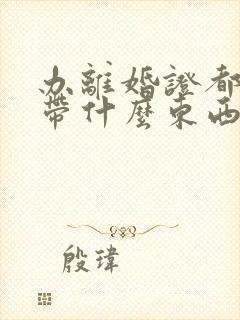 办離婚證都
帶什麼東西
殷瑋